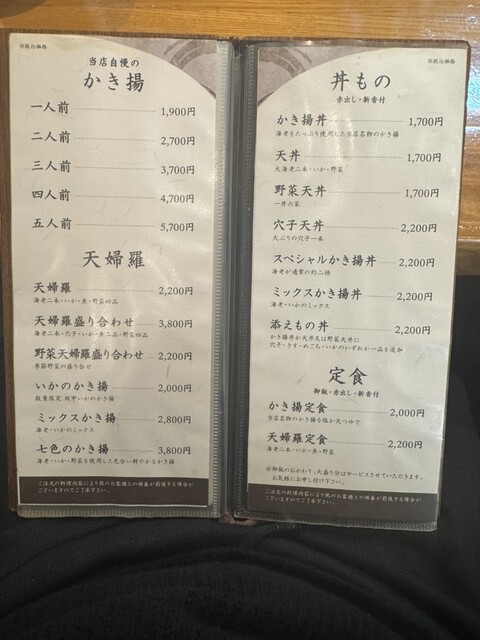 ※税込価格
当店自慢の
かき揚
一人前 1,900円
二人前 2,700円
三人前 3,700円
四人前 4,700円
五人前 5,700円
天婦羅
天婦羅 2,200円
海老二本・いか・魚・野菜四品
天婦羅盛り合わせ 3,800円
海老二本・穴子・いか・魚二品・野菜四品
野菜天婦羅盛り合わせ 2,200円
季節野菜の盛り合せ
いかのかき揚 2,000円
数量限定 肉厚いかのかき揚
ミックスかき揚 2,800円
海老・いかのミックス
七色のかき揚 3,800円
海老・いか・野菜を使用した色合い鮮やかなかき揚
ご注文の料理内容により他のお客様との順番が前後する場合が
ございますのでご了承下さい。
※税込価格
丼もの
赤出し・新香付
かき揚丼 1,700円
海老をたっぷり使用した当店名物のかき揚
天丼 1,700円
大海老二本・いか・野菜
野菜天丼 1,700円
一丼六菜
穴子天丼 2,200円
大ぶりの穴子一本
スペシャルかき揚丼 2,200円
海老が通常の約二倍
ミックスかき揚丼 2,200円
海老・いかのミックス
添えもの丼 2,200円
かき揚丼か天丼又は野菜天丼に
穴子・きす・めごち・いかのいずれか一品を追加
定食
御飯・赤出し・新香付
かき揚定食 2,000円
当店名物のかき揚を塩か天つゆで
天婦羅定食 2,200円
海老二本・いか・魚・野菜
※御飯のおかわり、大盛り分はサービスさせていただきます。
お気軽にお申し付け下さい。
ご注文の料理内容により他のお客様との順番が前後する場合が
ございますのでご了承下さい。